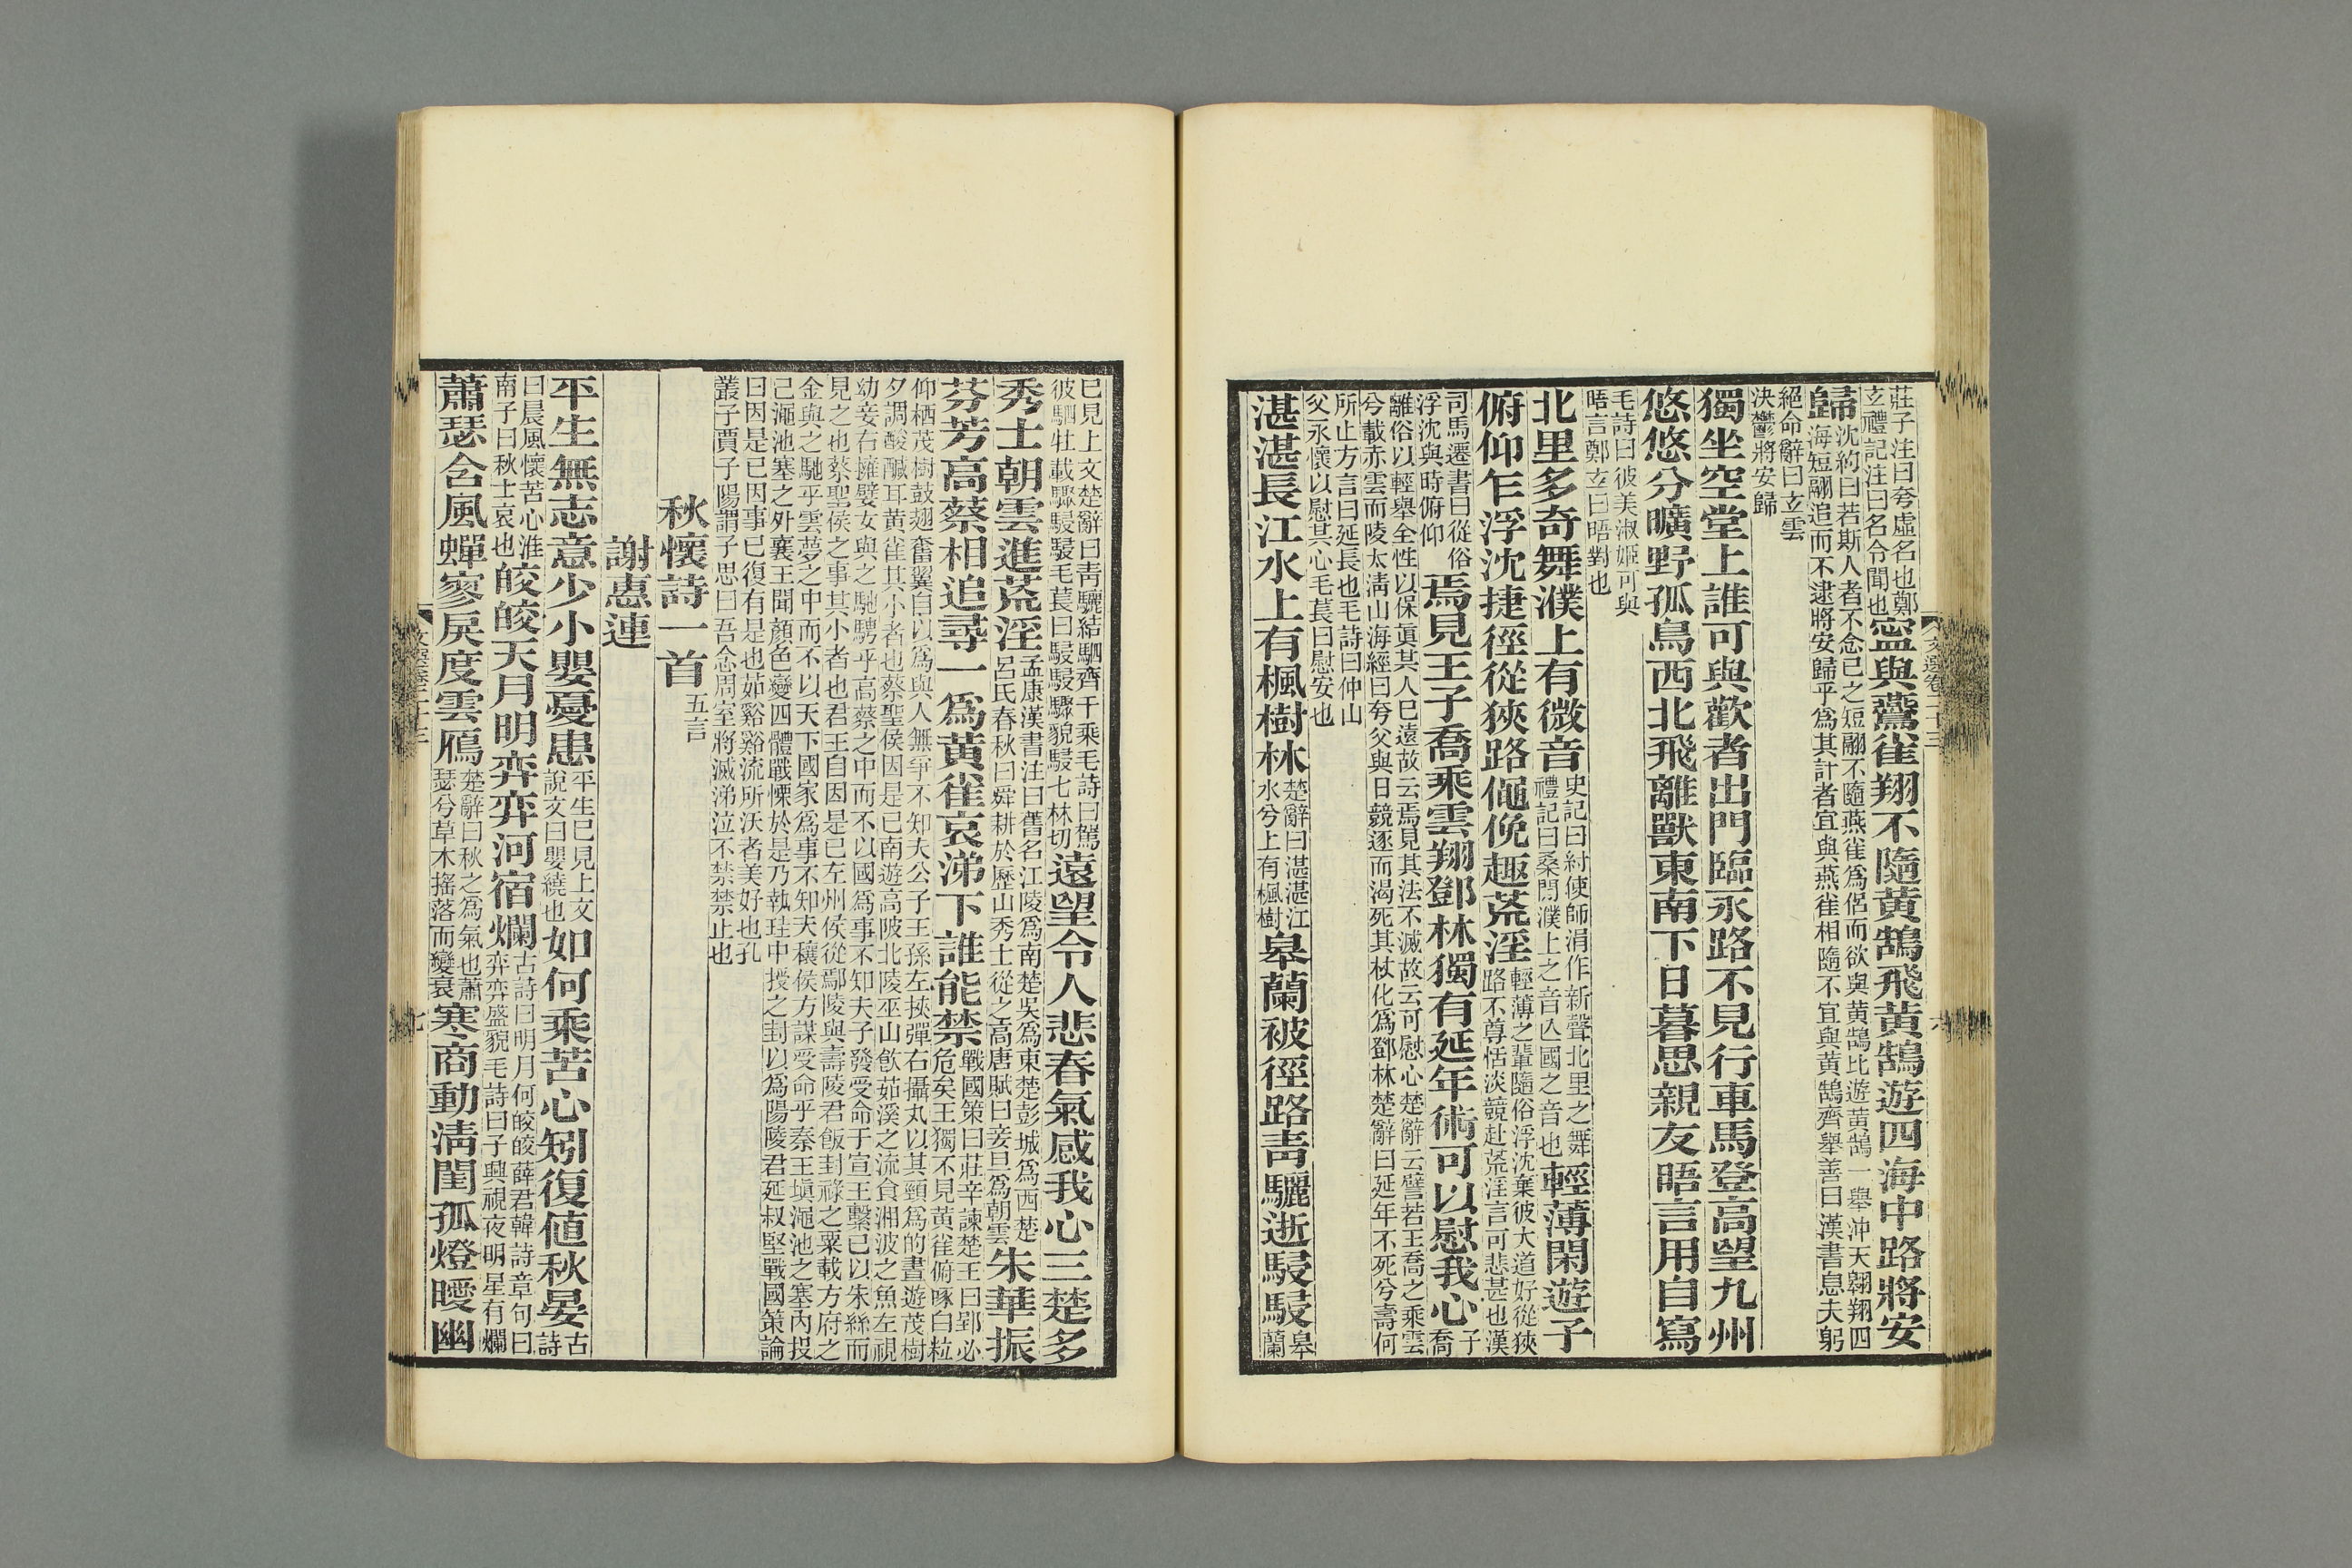 莊子注曰夸虛名也鄭
玄禮記注曰名令聞也寧與鷰雀翔不隨黄鵠飛黄鵠遊四海中路將安
歸沈約曰若斯人者不念己之短翮不隨燕雀爲侶而欲與黄鵠比遊黄鵠一舉沖天翱翔四
海短翮追而不逮將安歸乎爲其計者宜與燕雀相隨不宜與黄鵠齊舉善曰漢書息夫躬
絕命辭曰玄雲
決鬱將安歸
獨坐空堂上誰可與歡者出門臨永路不見行車馬登高望九州
悠悠分曠野孤鳥西北飛離獸東南下日暮思親友晤言用自寫
毛詩曰彼美淑姬可與
晤言鄭玄曰晤對也
北里多奇舞濮上有微音史記曰紂使師涓作新聲北里之舞
禮記曰桑間濮上之音亾國之音也輕薄閑遊子
俯仰乍浮沈捷徑從狹路僶俛趣荒淫輕薄之輩隨俗浮沈棄彼大道好從狹
路不尊恬淡競赴荒淫言可悲甚也漢
司馬遷書曰從俗
浮沈與時俯仰焉見王子喬乘雲翔鄧林獨有延年術可以慰我心子
喬
離俗以輕舉全性以保眞其人巳遠故云焉見其法不滅故云可慰心楚辭云譬若王喬之乘雲
兮載赤雲而陵太淸山海經曰夸父與日競逐而渴死其杖化爲鄧林楚辭曰延年不死兮壽何
所止方言曰延長也毛詩曰仲山
父永懷以慰其心毛萇曰慰安也
湛湛長江水上有楓樹林楚辭曰湛湛江
水兮上有楓樹皋蘭被徑路靑驪逝駸駸皋
蘭
巳見上文楚辭曰靑驪結駟齊千乘毛詩曰駕
彼駟牡載驟駸駸毛萇曰駸駸驟貌駸七林切遠望令人悲春氣感我心三楚多
秀士朝雲進荒淫孟康漢書注曰舊名江陵爲南楚吳爲東楚彭城爲西楚
呂氏春秋曰舜耕於歷山秀士從之高唐賦曰妾旦爲朝雲朱華振
芬芳高蔡相追尋一爲黄雀哀涕下誰能禁戰國策曰莊辛諫楚王曰郢必
危矣王獨不見黄雀俯啄白粒
仰栖茂樹鼓翅奮翼自以爲與人無爭不知夫公子王孫左挾彈右攝丸以其頸爲的晝遊茂樹
夕調酸醎耳黄雀其小者也蔡聖侯因是巳南遊高陂北陵巫山飮茹溪之流食湘波之魚左視
幼妾右擁嬖女與之馳騁乎高蔡之中而不以國爲事不知夫子發受命于宣王繫己以朱絲而
見之也蔡聖侯之事其小者也君王自因是巳左州侯從鄢陵與壽陵君飯封祿之粟載方府之
金與之馳乎雲夢之中而不以天下國家爲事不知夫穰侯方謀受命乎秦王塡澠池之塞内投
己澠池塞之外襄王聞顔色變四體戰慄於是乃執珪中授之封以爲陽陵君延叔堅戰國策論
曰因是巳因事巳復有是也茹谿谿流所沃者美好也孔
叢子賈子陽謂子思曰吾念周室將滅涕泣不禁禁止也
秋懷詩一首五言
謝惠連
平生無志意少小嬰憂患平生巳見上文
說文曰嬰繞也如何乘苦心矧復値秋晏古
詩
曰晨風懷苦心淮
南子曰秋士哀也皎皎天月明弈弈河宿爛古詩曰明月何皎皎薛君韓詩章句曰
弈弈盛貌毛詩曰子興視夜明星有爛
蕭瑟含風蟬寥戾度雲鴈楚辭曰秋之爲氣也蕭
瑟兮草木搖落而變衰寒商動淸閨孤燈曖幽
文選卷二十三
六
七